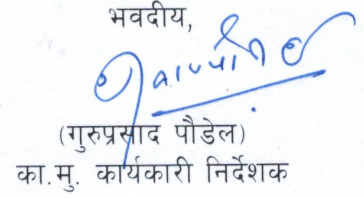 भवदीय,
(गुरुप्रसाद पौडेल)
का.मु. कार्यकारी निर्देशक